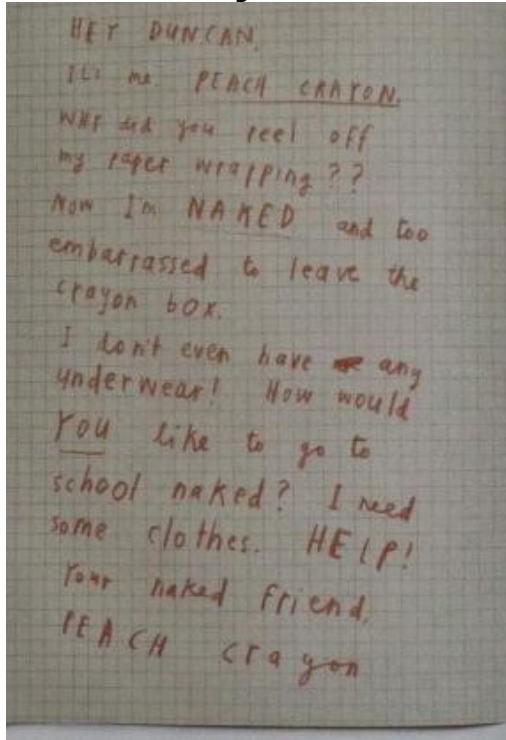 HEY DUNCAN,
It's me PEACH CRAYON.
WHY did you peel off
my paper wrapping??
Now I'm NAKED and too
embarrassed to leave the
crayon box.
I don't even have any
underwear! How would
YOU like to go to
school naked? I need
some clothes. HELP!
Your naked friend,
PEACH crayon